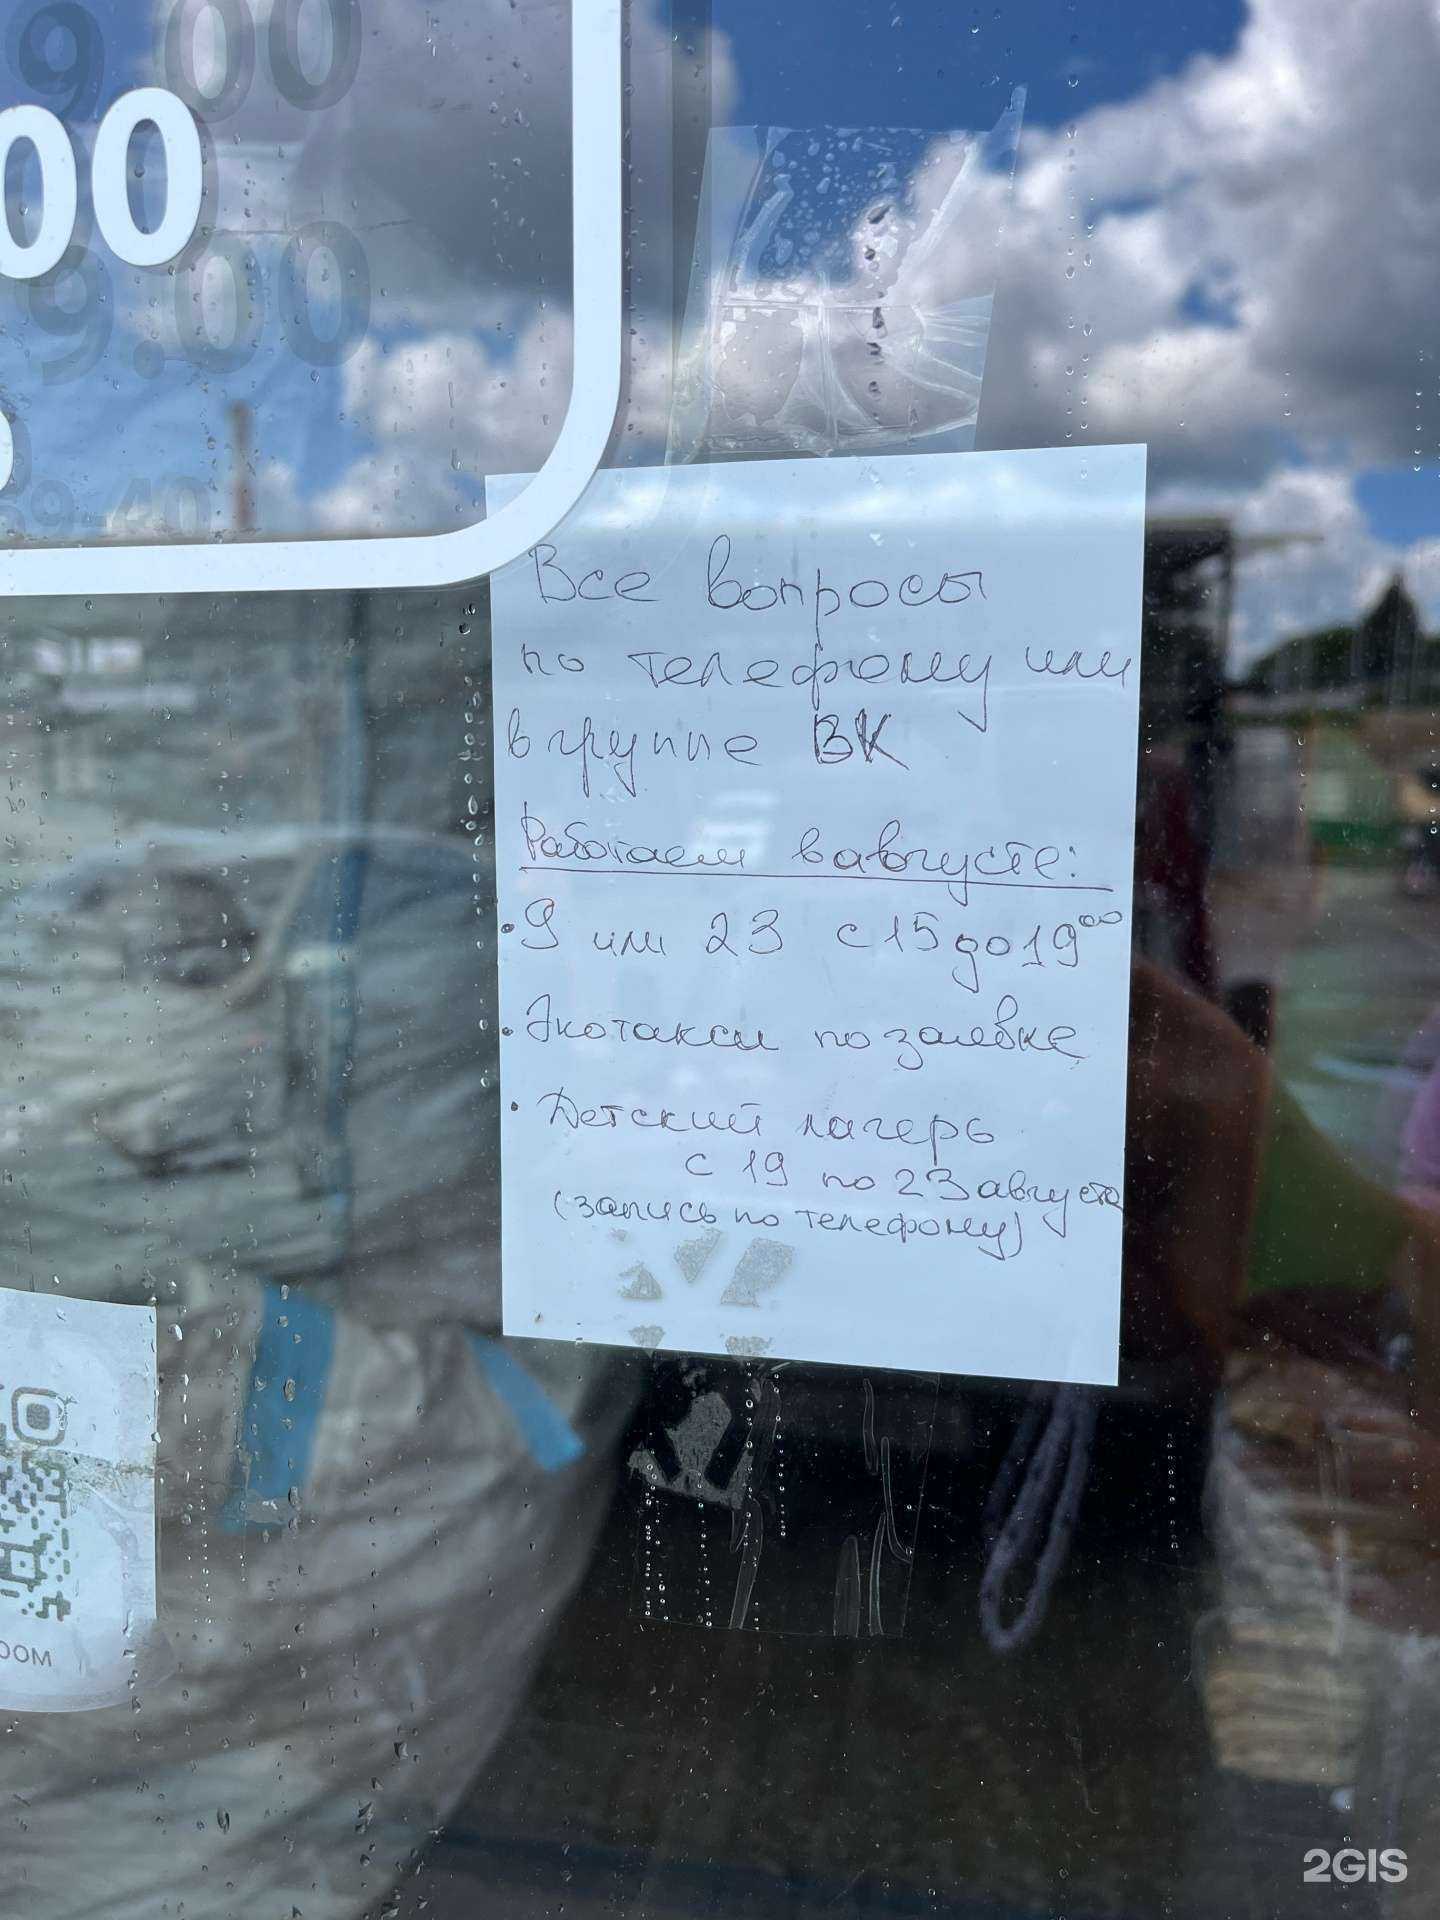 9.00
00
9.00
Все вопросы
по телефону или
в группе ВК
Работаем в августе:
• 9 или 23 с 15 до 19⁰⁰
• Экотакси по заявке
• Детский лагерь
с 19 по 23 августа
(запись по телефону)
2GIS